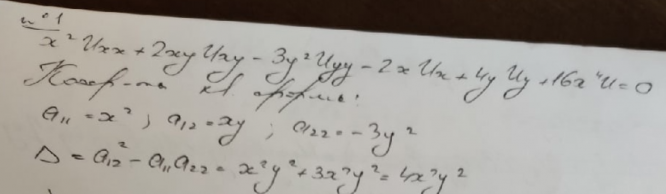 №1
x² Uxx + 2xy Uxy - 3y² Uyy - 2x Ux + 4y Uy + 16x⁴U = 0
Коэф-ты кв. формы:
a₁₁ = x² ; a₁₂ = xy ; a₂₂ = -3y²
Δ = a₁₂² - a₁₁a₂₂ = x²y² + 3x²y² = 4x²y²